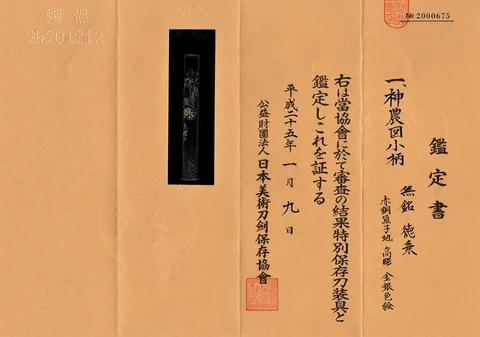 № 2000675
鑑定書
一、神農図小柄
無銘 徳乗
赤銅魚子地 高彫 金銀色絵
右は當協會に於て審査の結果特別保存刀装具と
鑑定しこれを証する
平成二十五年一月九日
公益財團法人日本美術刀劍保存協會